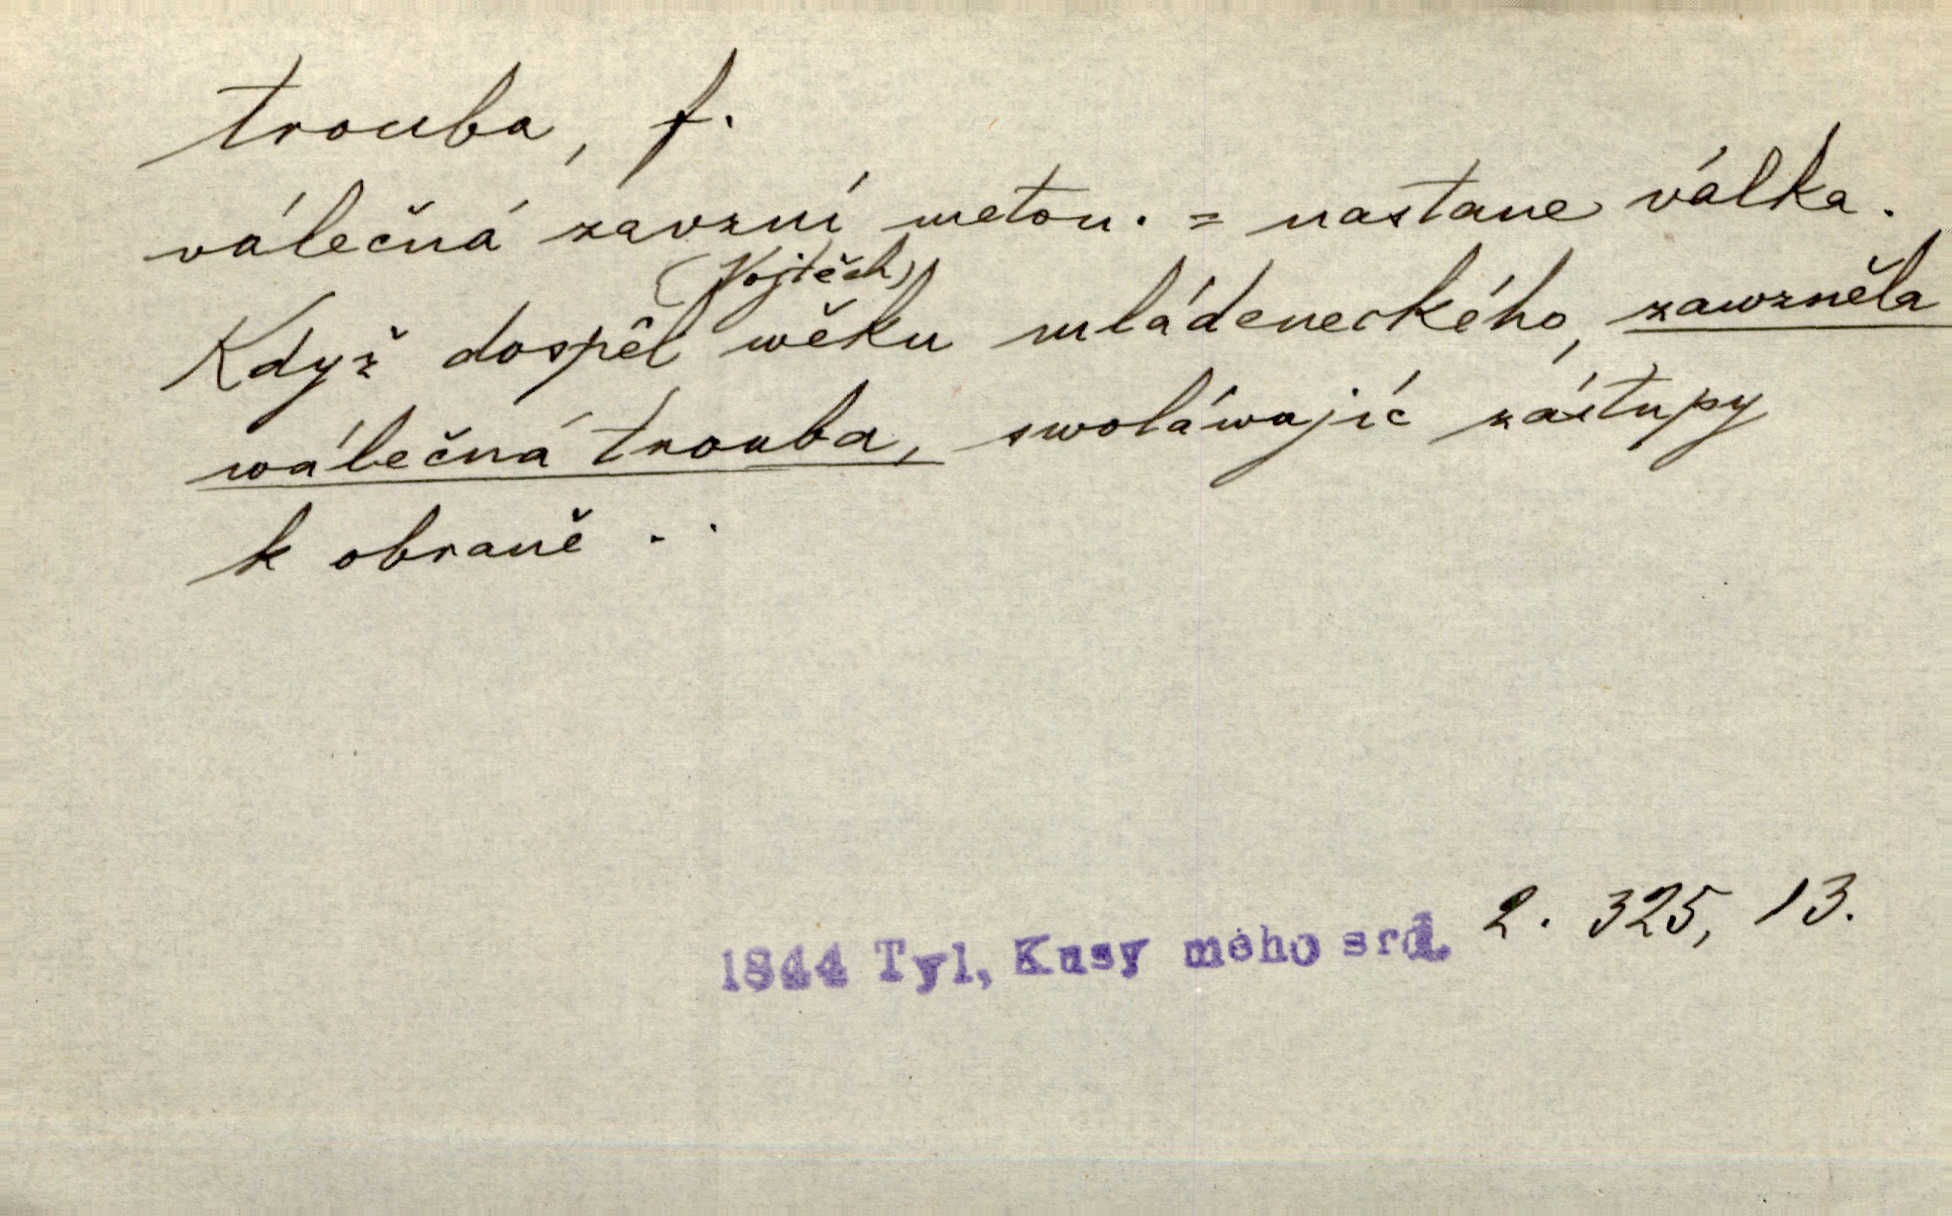 trouba, f.
válečná zavzní meton. = nastane válka.
(Vojtěch)
Když dospěl wěku mládeneckého, zawzněla
wálečná trouba, swoláwajíc zástupy
k obraně ..
1844 Tyl, Kusy mého srd. 2. 325, 13.